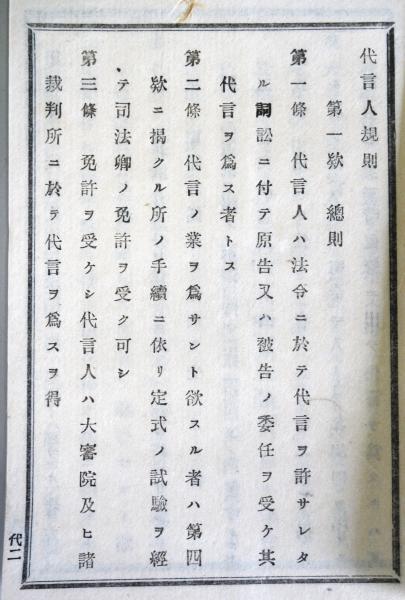 代言人規則
第一欵 總則
第一條 代言人ハ法令ニ於テ代言ヲ許サレタ
ル詞訟ニ付テ原告又ハ被告ノ委任ヲ受ケ其
代言ヲ爲ス者トス
第二條 代言ノ業ヲ爲サント欲スル者ハ第四
欵ニ揭クル所ノ手續ニ依リ定式ノ試驗ヲ經
テ司法卿ノ免許ヲ受ク可シ
第三條 免許ヲ受ケシ代言人ハ大審院及ヒ諸
裁判所ニ於テ代言ヲ爲スヲ得
代二